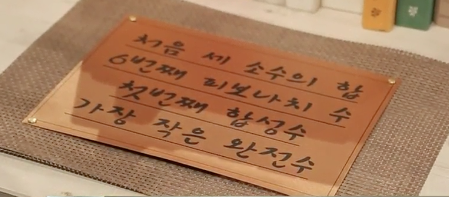 처음 세 소수의 합
6번째 피보나치 수
첫번째 합성수
가장 작은 완전수